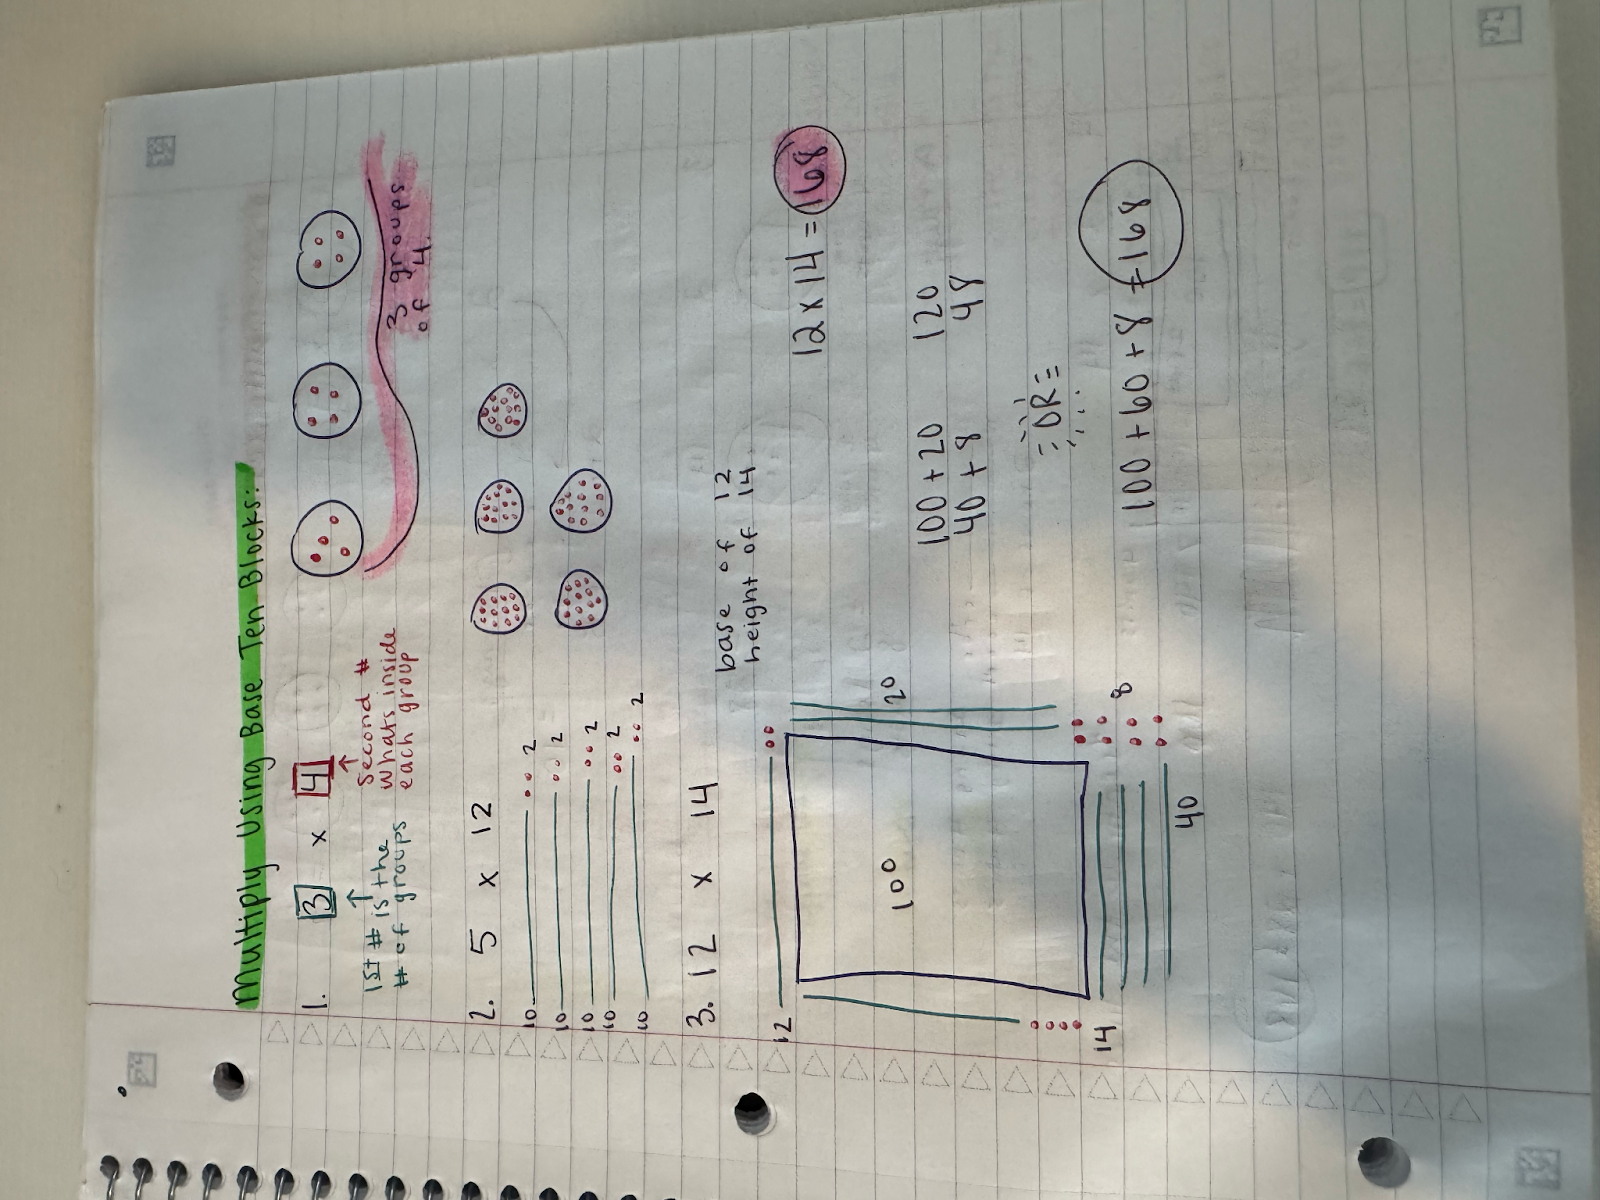 Multiply Using Base Ten Blocks:
1. 3 x 4
1st # is the
# of groups
Second #
whats inside
each group
3 groups
of 4.
2. 5 x 12
10 2
10 2
10 2
10 2
10 2
3. 12 x 14
base of 12
height of 14
12 x 14 = 168
12
100
20
14
40
8
100 + 20 120
40 + 8 48
OR
100 + 60 + 8 = 168